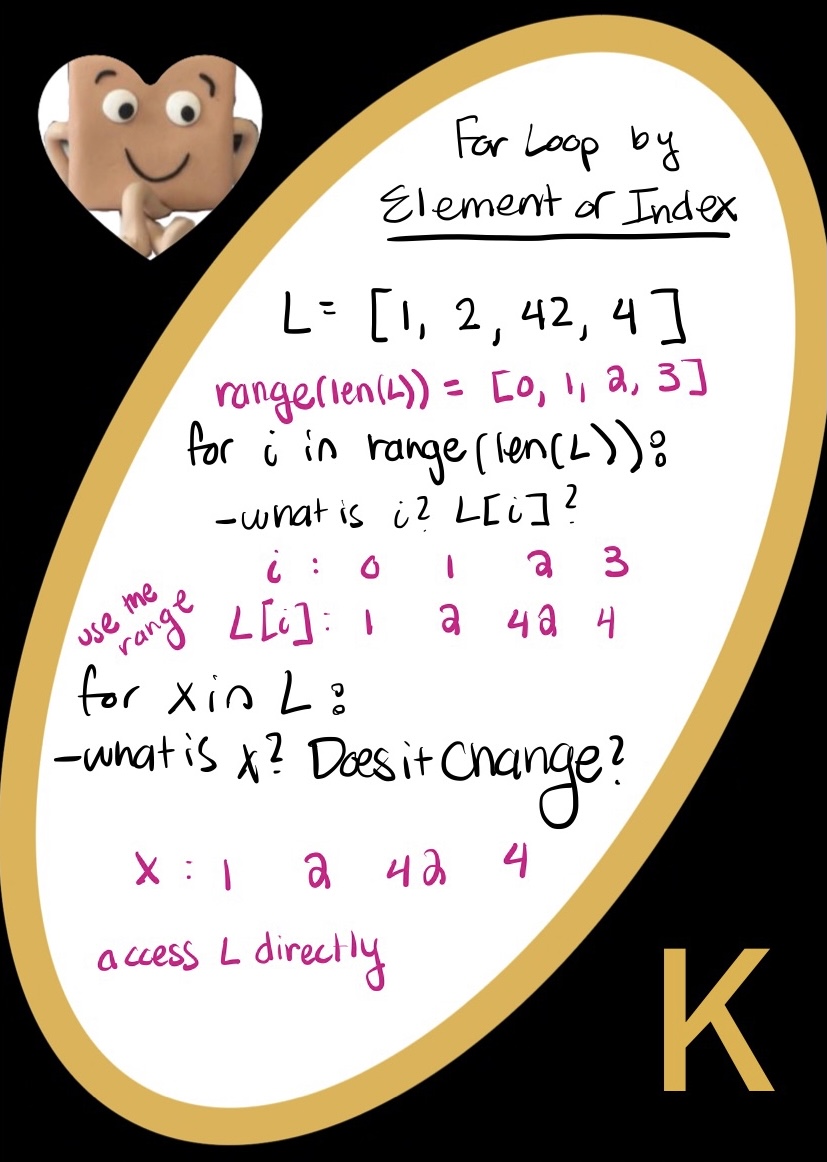 For Loop by
Element or Index
L= [1, 2, 42, 4]
range(len(L)) = [0, 1, 2, 3]
for i in range(len(L)):
-what is i? L[i]?
i : 0 1 2 3
use the
range
L[i]: 1 2 42 4
for x in L:
-what is x? Does it Change?
x : 1 2 42 4
access L directly
K